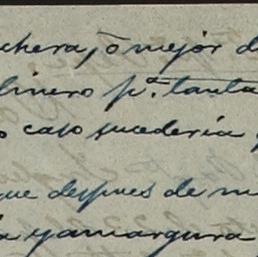 chera, ó mejor d
linero pª. tanta
o caso sucedería
que despues de m
ía y amargura